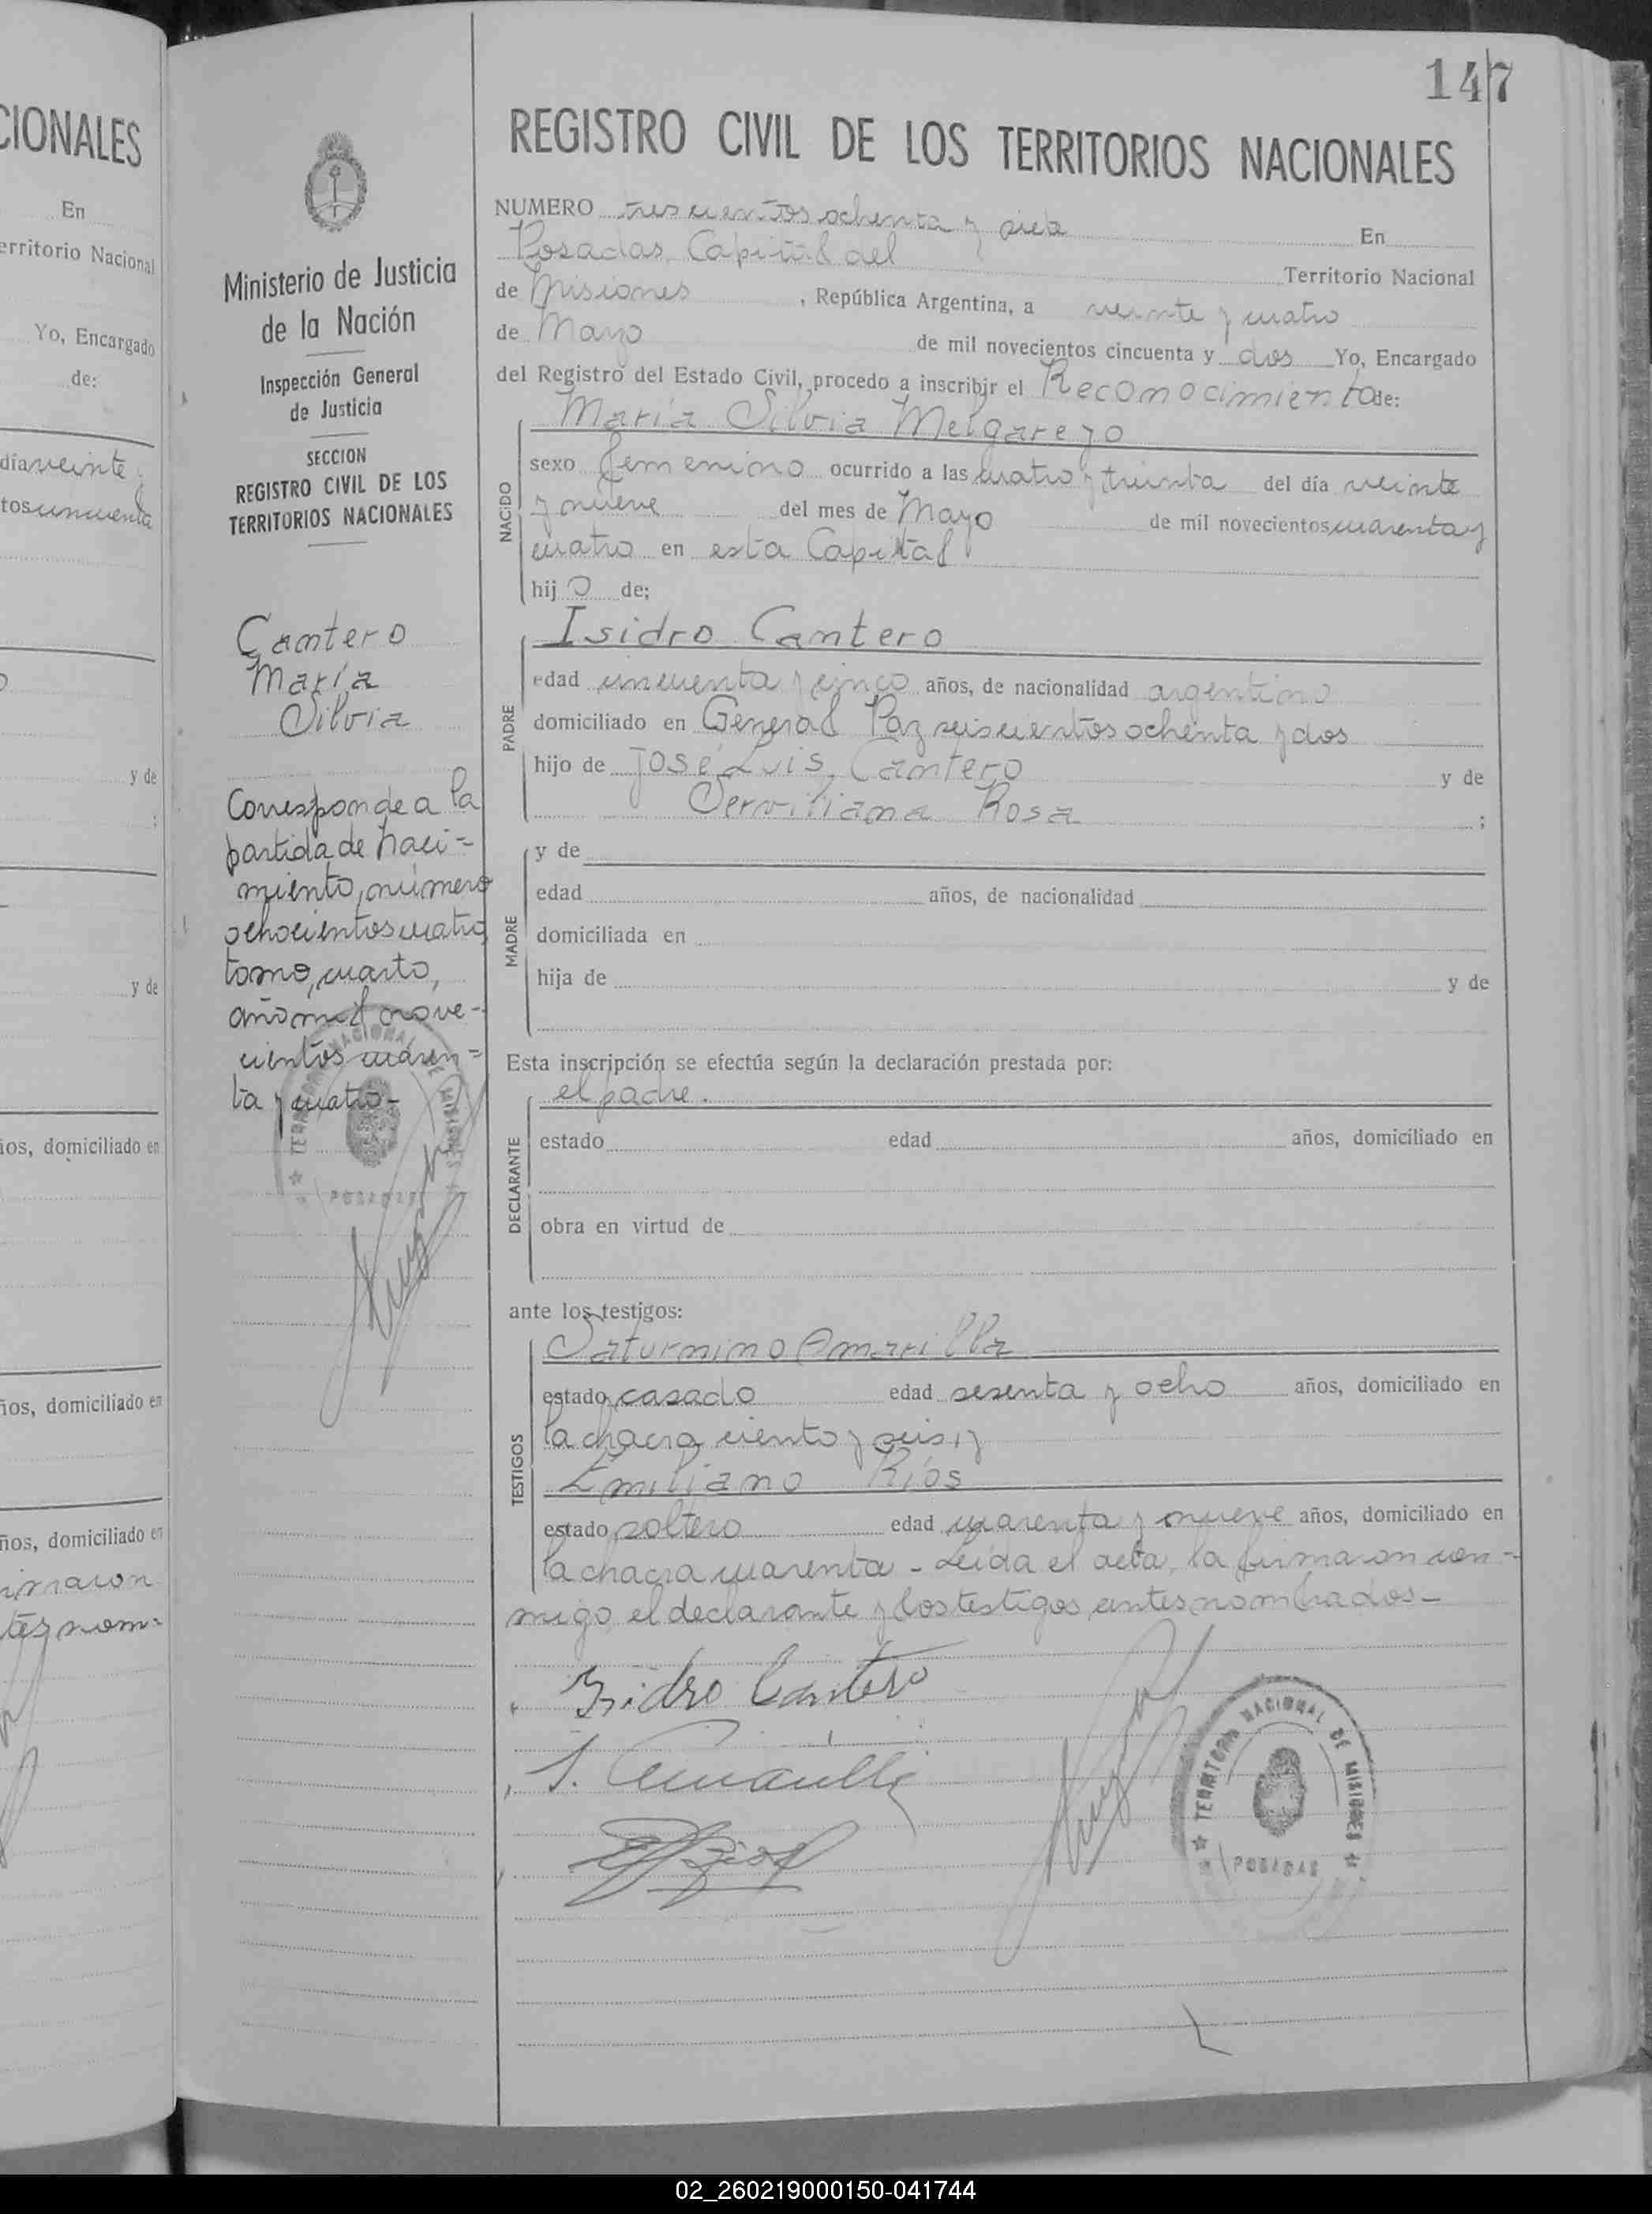 CIONALES
En
erritorio Nacional
Yo, Encargado
de:
día veinte y
tos cincuenta
y de
;
y de
ios, domiciliado en
ños, domiciliado en
ños, domiciliado en
irmaron
tes nom-
147
Ministerio de Justicia
de la Nación
Inspección General
de Justicia
SECCION
REGISTRO CIVIL DE LOS
TERRITORIOS NACIONALES
Cantero
María
Silvia
Corresponde a la
partida de naci-
miento, número
ochocientos cuatro,
tomo, cuarto,
año mil nove-
cientos cuaren-
ta y cuatro-
TERRITORIO NACIONAL DE MISIONES
POSADAS
REGISTRO CIVIL DE LOS TERRITORIOS NACIONALES
NUMERO trescientos ochenta y siete En
Posadas, Capital del Territorio Nacional
de Misiones , República Argentina, a veinte y cuatro
de Mayo de mil novecientos cincuenta y dos Yo, Encargado
del Registro del Estado Civil, procedo a inscribir el Reconocimiento de:
María Silvia Melgarejo
NACIDO
sexo femenino ocurrido a las cuatro y treinta del día veinte
y nueve del mes de Mayo de mil novecientos cuarenta y
cuatro en esta Capital
hij a de;
Isidro Cantero
PADRE
edad cincuenta y cinco años, de nacionalidad argentino
domiciliado en General Paz seiscientos ochenta y dos
hijo de José Luis Cantero y de
Serviliana Rosa ;
MADRE
y de
edad años, de nacionalidad
domiciliada en
hija de y de
Esta inscripción se efectúa según la declaración prestada por:
el padre.
DECLARANTE
estado edad años, domiciliado en
obra en virtud de
ante los testigos:
Saturnino Amarilla
TESTIGOS
estado casado edad sesenta y ocho años, domiciliado en
la chacra ciento y seis, y
Emiliano Ríos
estado soltero edad cuarenta y nueve años, domiciliado en
la chacra cuarenta - Leída el acta, la firmaron con-
migo, el declarante y los testigos antes nombrados-
Isidro Cantero
S. Amarilla
E. Rios
TERRITORIO NACIONAL DE MISIONES
POSADAS
02_260219000150-041744